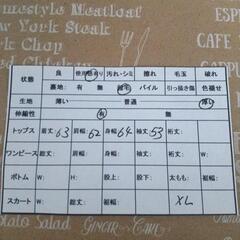 omestyle Meatloaf
New York Steak
Pork Chop
ed Chicken
ESPR
CAFE
CAPPU
状態 良 使用感あり 汚れ・シミ 擦れ 毛玉 破れ
裏地: 有 無 起毛 パイル 引っ掻き傷 色褪せ
生地 薄い 普通 厚い
伸縮性 有 無
トップス 総丈: 63 肩幅: 62 身幅: 64 袖丈: 53 裄丈:
ワンピース 総丈: 肩幅: 身幅: 袖丈: 裄丈: W:
ボトム W: H: 股上: 股下: 太もも: 裾幅:
スカート W: H: 総丈: 裾幅: XL
otato Salad
GINGER